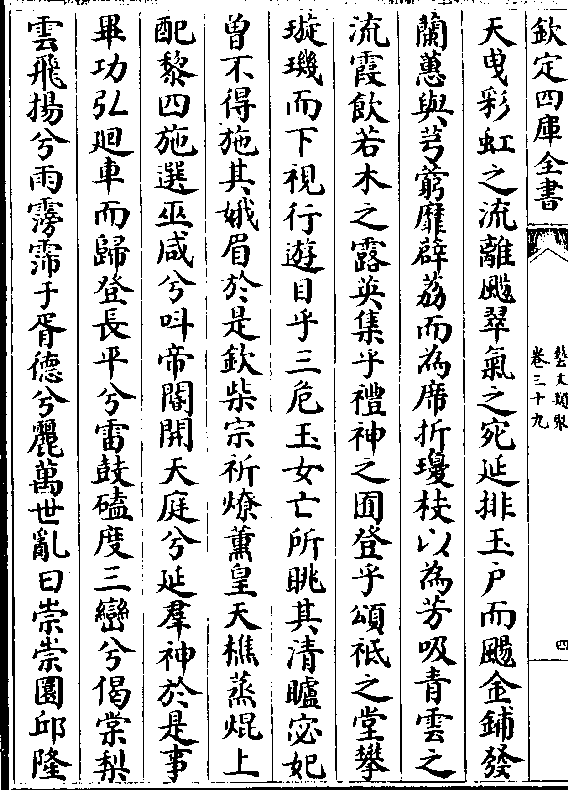 欽定四庫全書
藝文類聚
卷三十九
四
天曳彩虹之流離颺翠氣之宛延排玉戶而颺金鋪發
蘭蕙與芎藭靡薜荔而為席折瓊枝以為芳吸青雲之
流霞飲若木之露英集乎禮神之囿登乎頌祗之堂攀
璇璣而下視行遊目乎三危玉女亡所眺其清矑宓妃
曾不得施其娥眉於是欽柴宗祈燎薰皇天樵蒸焜上
配黎四施選巫咸兮叫帝閽開天庭兮延羣神於是事
畢功弘廻車而歸登長平兮雷鼓磕度三巒兮偈棠梨
雲飛揚兮雨霶霈于胥德兮麗萬世亂曰崇崇圜邱隆